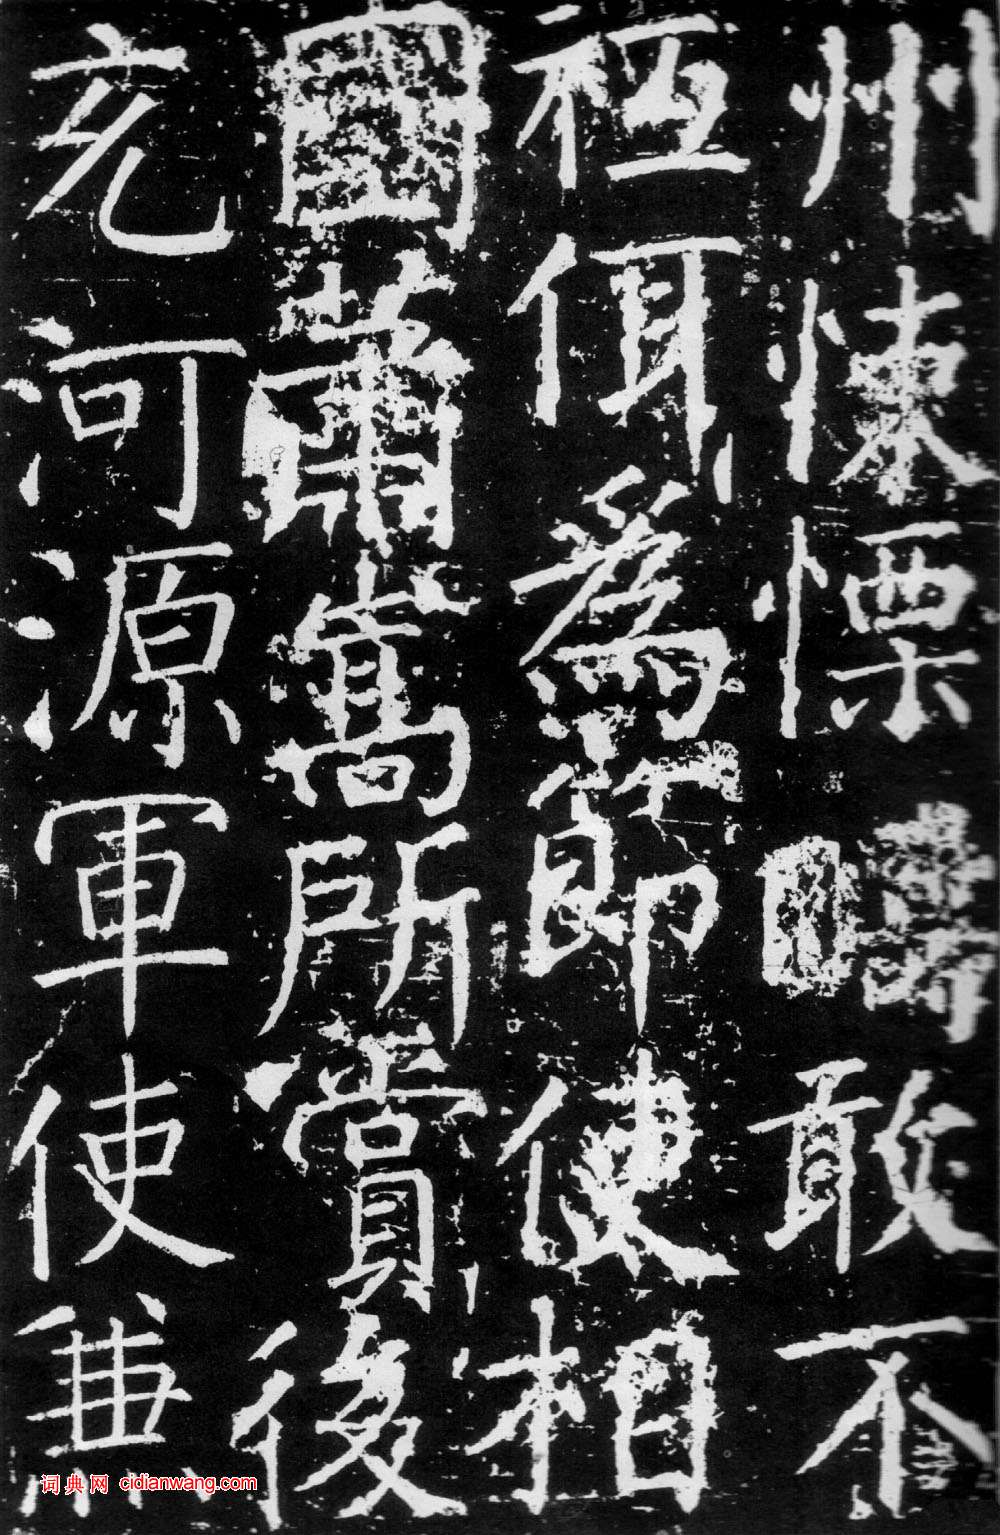 州悚慄疇敢不
祗佴為節使相
國蕭嵩所賞後
充河源軍使兼
词典网 cidianwang.com